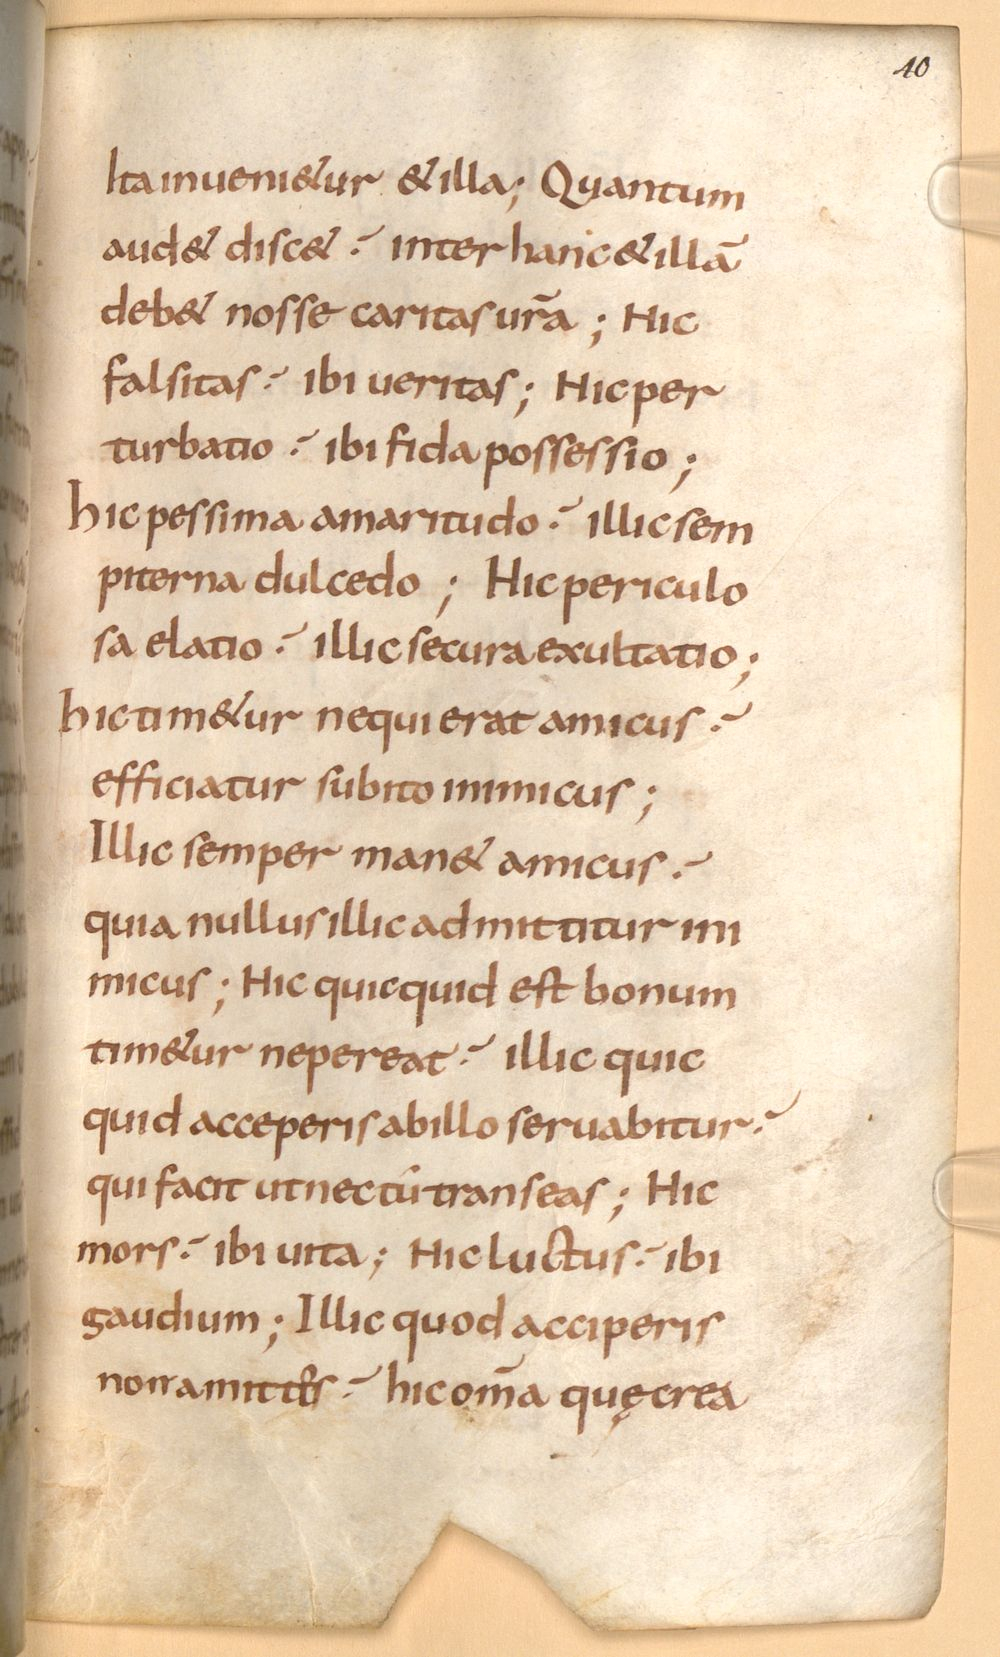 40
Ita inueni&ur & illa; Quantum
aud& disc& · inter hanc & illā
deb& nosse caritas ur̄a ; Hic
falsitas · ibi ueritas ; Hic per
turbatio · ibi fida possessio ;
hic pessima amaritudo · illic sem
piterna dulcedo ; Hic periculo
sa elatio · illic secura exultatio ;
hic tim&ur ne qui erat amicus ·
efficiatur subito inimicus ;
Illic semper man& amicus ·
quia nullus illic admittitur ini
micus ; Hic quicquid est bonum
tim&ur ne pereat · illic quic
quid acceperis ab illo seruabitur ·
qui facit ut nec tū transeas ; Hic
mors · ibi uita ; Hic luctus · ibi
gaudium ; Illic quod acciperis
non amittis · hic om̄a quę crea